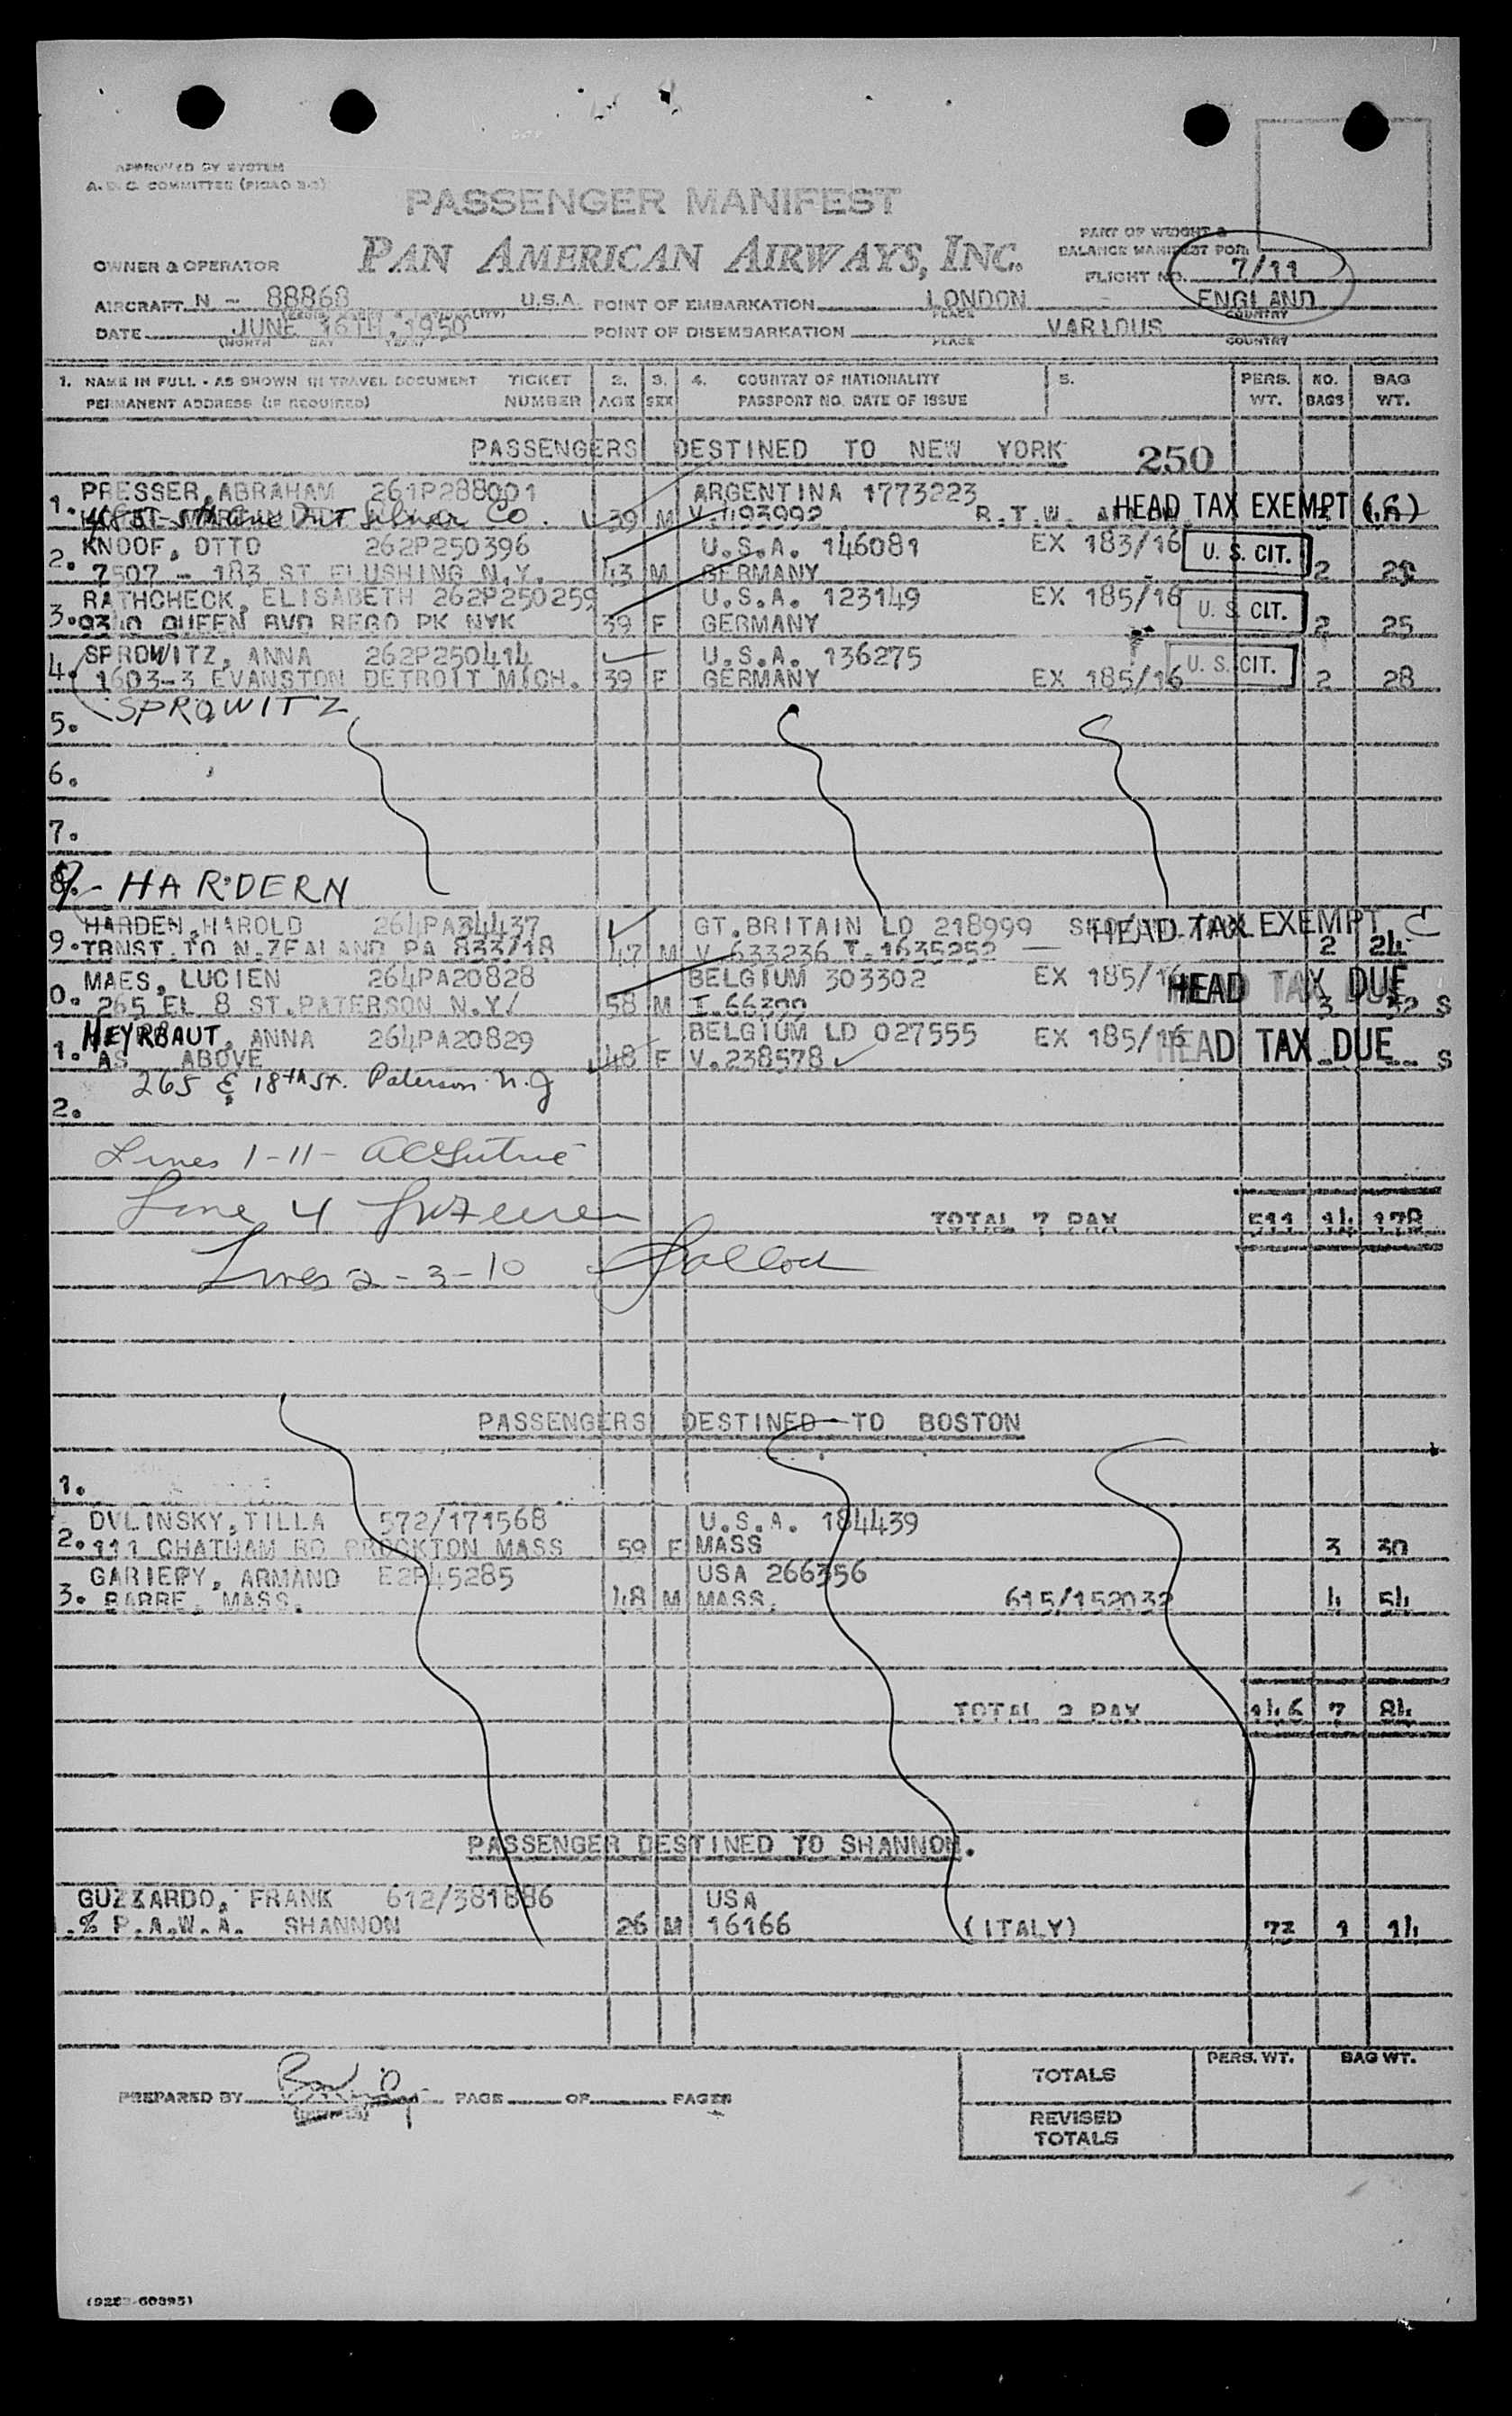 APPROVED BY SYSTEM
A. D. C. COMMITTEE (PICAO 3-3)
PASSENGER MANIFEST
PAN AMERICAN AIRWAYS, INC.
PART OF WEIGHT &
BALANCE MANIFEST FOR
OWNER & OPERATOR
FLIGHT NO. 7/11
AIRCRAFT N - 88868 U.S.A. POINT OF EMBARKATION LONDON - ENGLAND
PLACE COUNTRY
DATE JUNE 16TH.1950 POINT OF DISEMBARKATION VARIOUS
(MONTH DAY YEAR) PLACE COUNTRY
1. NAME IN FULL - AS SHOWN IN TRAVEL DOCUMENT TICKET 2. 3. 4. COUNTRY OF NATIONALITY 5. PERS. NO. BAG
PERMANENT ADDRESS (IF REQUIRED) NUMBER AGE SEX PASSPORT NO. DATE OF ISSUE WT. BAGS WT.
PASSENGERS DESTINED TO NEW YORK 250
PRESSER,ABRAHAM 261P288001 ARGENTINA 1773223
1. Silver Co. 39 M V.493992 R.T.W. HEAD TAX EXEMPT
KNOOF, OTTO 262P250396 U.S.A. 146081 EX 183/16 U. S. CIT.
2. 7507 - 183 ST FLUSHING N.Y. 43 M GERMANY 2
RATHCHECK, ELISABETH 262P250259 U.S.A. 123149 EX 185/16 U. S. CIT.
3. QUEEN BVD REGO PK NYK 39 F GERMANY 2 25
SPROWITZ, ANNA 262P250414 U.S.A. 136275 U. S. CIT.
4. 1603-3 EVANSTON DETROIT MICH. 39 F GERMANY EX 185/16 2 28
SPROWITZ
5.
6.
7.
8. HARDERN
HARDEN,HAROLD 264PA34437 GT.BRITAIN LD 218999 HEAD TAX EXEMPT C
9. TRNST.TO N.ZEALAND PA 833/18 47 M V 633236 T.1635252 2 24
MAES, LUCIEN 264PA20828 BELGIUM 303302 EX 185/16 HEAD TAX DUE
0. 265 EL 8 ST.PATERSON N.Y/ 58 M I.66399 3 32 S
HEYRBAUT, ANNA 264PA20829 BELGIUM LD 027555 EX 185/16 HEAD TAX DUE
1. AS ABOVE 48 F V.238578 S
265 E 18th St. Paterson N.J
2.
Lines 1-11-
Line 4
TOTAL 7 PAX 511 14 178
Lines 2-3-10
PASSENGERS DESTINED TO BOSTON
1.
DVLINSKY,TILLA 572/171568 U.S.A. 184439
2. 111 CHATHAM RD BROCKTON MASS 59 F MASS 3 30
GARIEPY, ARMAND E2P45285 USA 266356
3. BARRE, MASS. 48 M MASS. 615/152032 4 54
TOTAL 2 PAX 146 7 84
PASSENGER DESTINED TO SHANNON.
GUZZARDO, FRANK 612/381886 USA
% P.A.W.A. SHANNON 26 M 16166 (ITALY) 73 1 14
PERS. WT. BAG WT.
TOTALS
PREPARED BY PAGE OF PAGES
REVISED
TOTALS